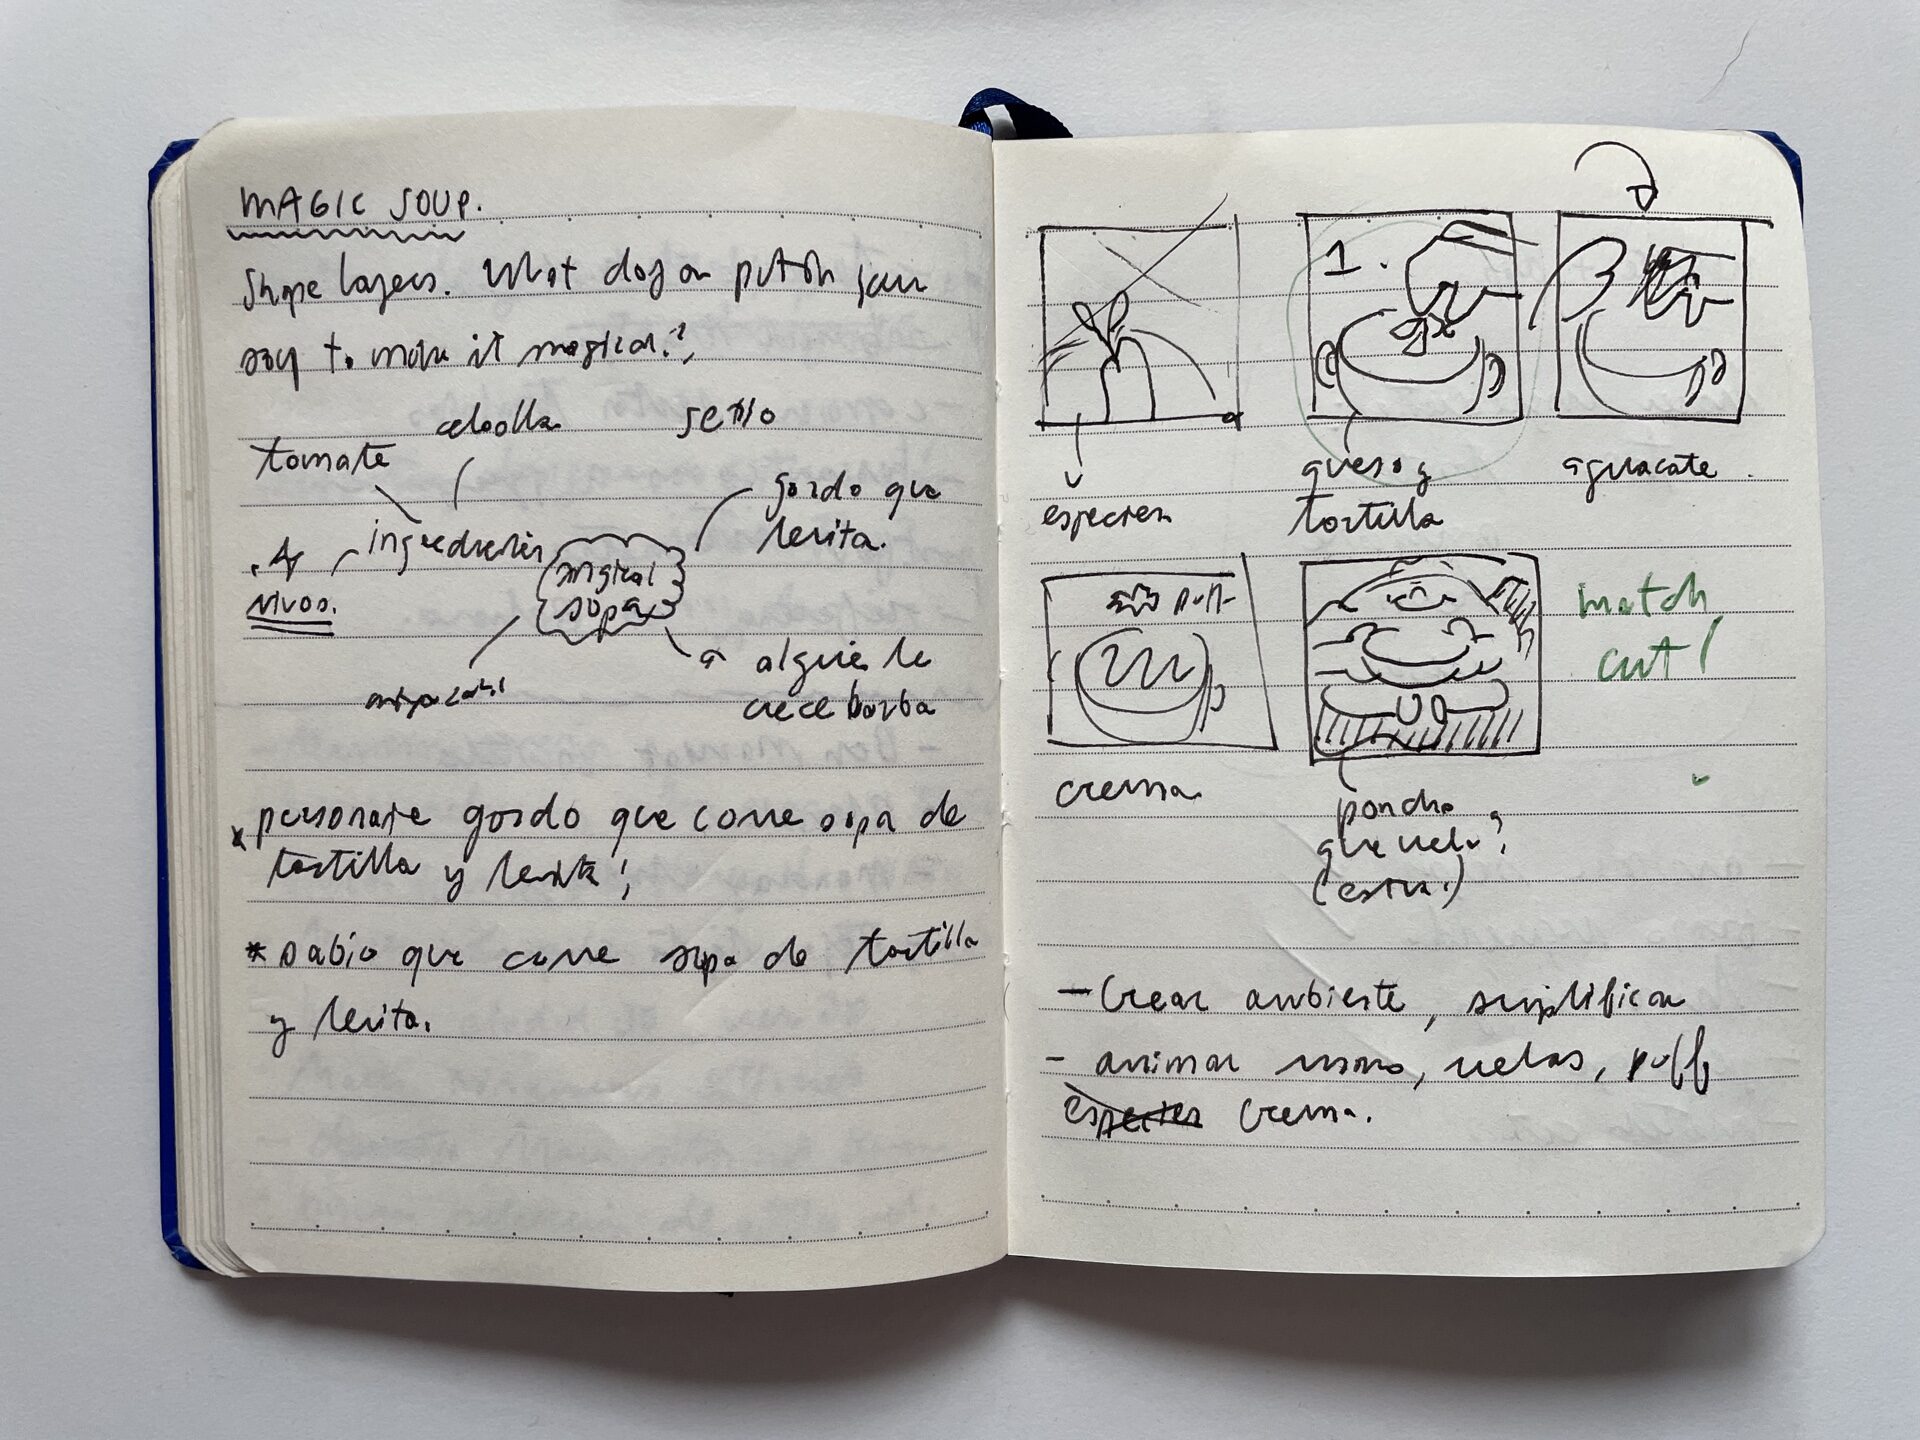 MAGIC SOUP.
Shape layers. What do you put in your
soup to make it magical?
cebolla
setto
tomate
gordo que
levita.
ingredientes
vivos.
magical
sopa
a alguien le
crece barba
* personaje gordo que come sopa de
tortilla y levita!
* sabio que come sopa de tortilla
y levita.
1.
especies
queso y
tortilla
aguacate
puff
match
cut!
crema
poncho
que vuela?
(extra.)
- Crear ambiente, simplificar
- animar mano, velas, puff
especies crema.